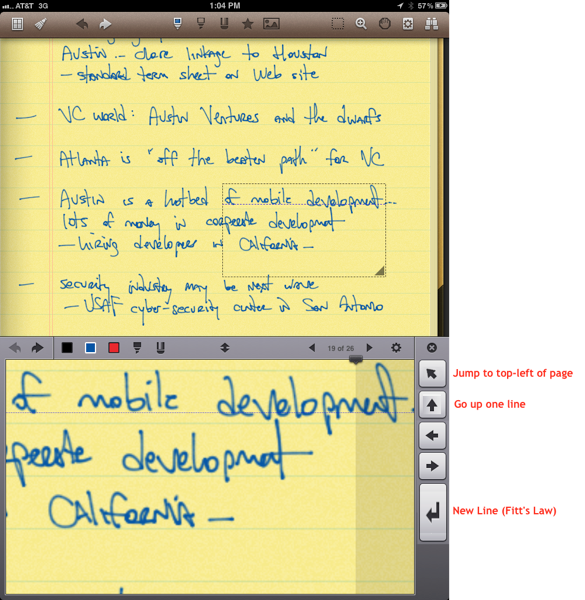 AT&T 3G 1:04 PM 57%
Austin – clare linkage to Houston
– standard term sheet on Web site
— VC world: Austin Ventures and the dwarfs
— Atlanta is "off the beaten path" for VC
— Austin is a hotbed of mobile development...
lots of money in corporate development
– hiring developers in California –
— security industry may be next wave
– USAF cyber-security center in San Antonio
19 of 26
of mobile development.
development
California –
Jump to top-left of page
Go up one line
New Line (Fitt's Law)